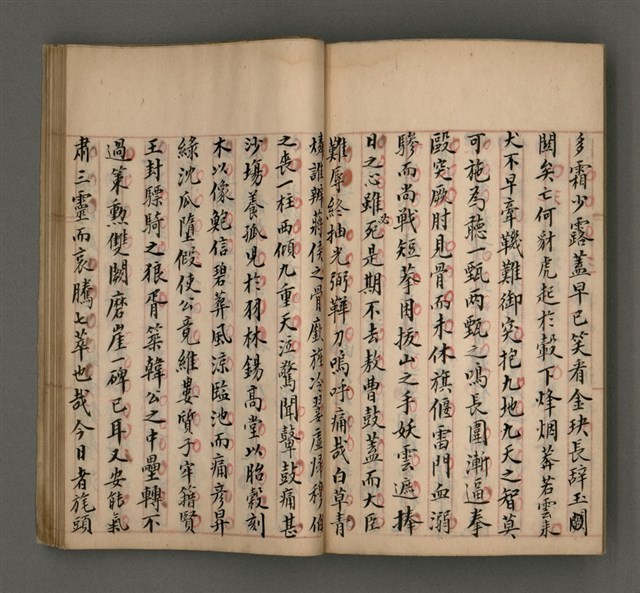 多霜少露蓋早已笑看金玦長辭玉闕
閎矣亡何豺虎起於轂下烽烟莽若雲來
犬不早牽韉難御突抱九地九天之智莫
可施為聽一甄兩甄之鳴長圍漸逼拳
毆突厥肘見骨而未休旗偃雷門血溺
驂而尚戰短莑困拔山之手妖雲遮捧
日之心雖死必是期不去敖曹鼓蓋而大臣
難辱終抽光弼鞾刀嗚呼痛哉白草青
燐誰辨蔣侯之骨麾旌冷翣虛歸穆伯
之喪一柱西傾九重天泣驚聞鼙鼓痛甚
沙場養孤兒於羽林錫高堂以胎穀刻
木以像鮑信碧葬風涼臨池而痛彥昇
綠沈瓜墮假使公竟維婁質子牢籍賢
王封驃騎之狼胥築韓公之中壘轉不
過策勳雙闕磨崖一碑已耳又安能氣
肅三靈而哀騰七萃也哉今日者旄頭